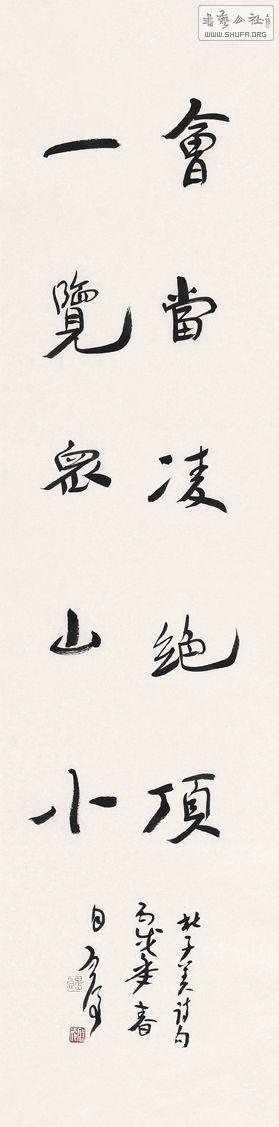 書藝公社
WWW.SHUFA.ORG
會當凌絶頂
一覽衆山小
杜子美诗句
丙戌年春
日